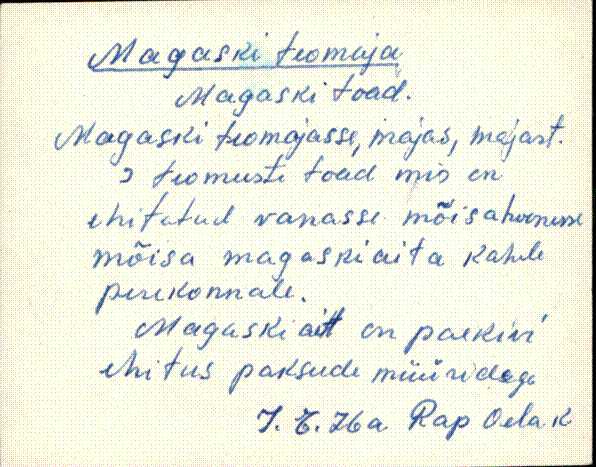 Magaski teomaja
Magaski toad.
Magaski teomajasse, majas, majast.
teomeeste toad mis on
ehitatud vanasse mõisahoonesse
mõisa magaskiaita kahele
perekonnale.
Magaskiait on paekivi
ehitus paksude müüridega
Rap Oela k